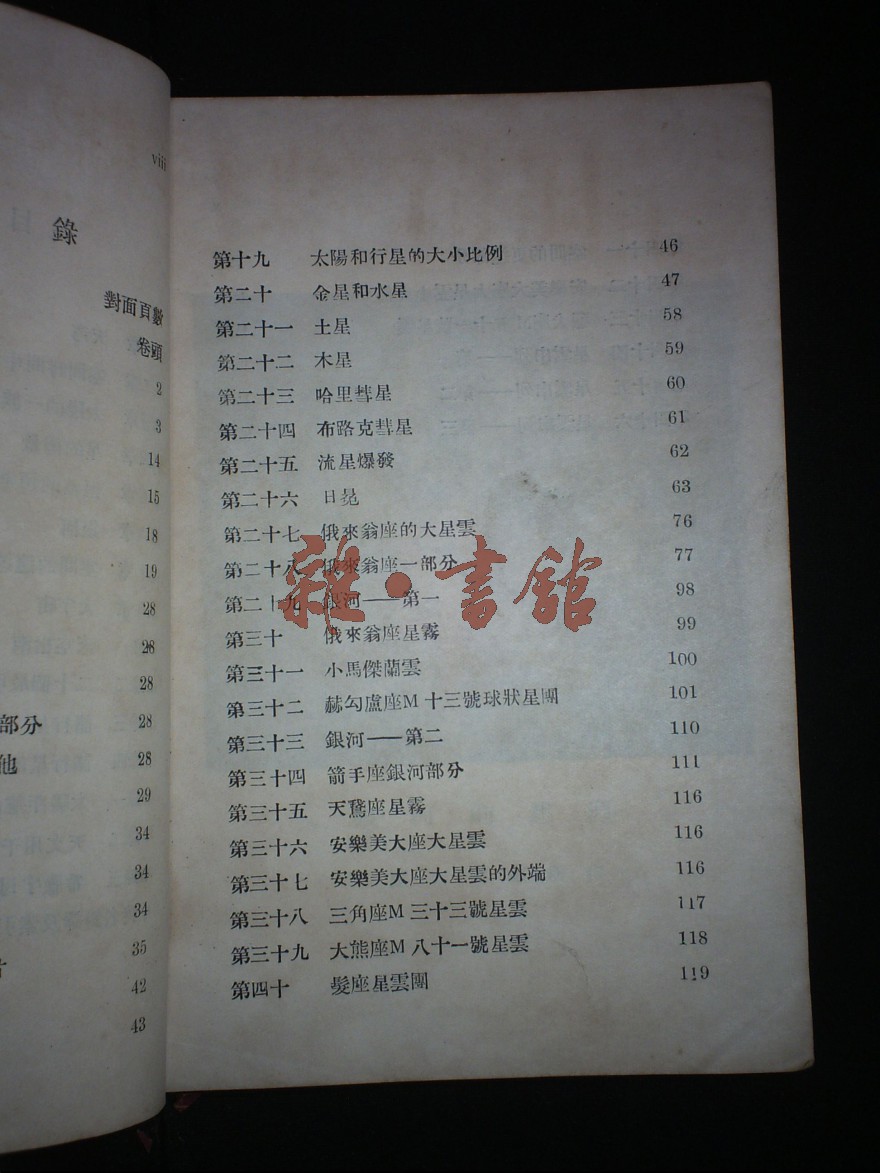 viii
目錄
對面頁數
卷頭
2
3
14
15
18
19
28
28
28
部分 28
他 28
29
34
34
34
35
42
43
第十九 太陽和行星的大小比例 46
第二十 金星和水星 47
第二十一 土星 58
第二十二 木星 59
第二十三 哈里彗星 60
第二十四 布路克彗星 61
第二十五 流星爆發 62
第二十六 日晃 63
第二十七 俄來翁座的大星雲 76
第二十八 俄來翁座一部分 77
第二十九 銀河——第一 98
第三十 俄來翁座星霧 99
第三十一 小馬傑蘭雲 100
第三十二 赫勾盧座M 十三號球狀星團 101
第三十三 銀河——第二 110
第三十四 箭手座銀河部分 111
第三十五 天鵞座星霧 116
第三十六 安樂美大座大星雲 116
第三十七 安樂美大座大星雲的外端 116
第三十八 三角座M 三十三號星雲 117
第三十九 大熊座M 八十一號星雲 118
第四十 髮座星雲團 119
雜·書館